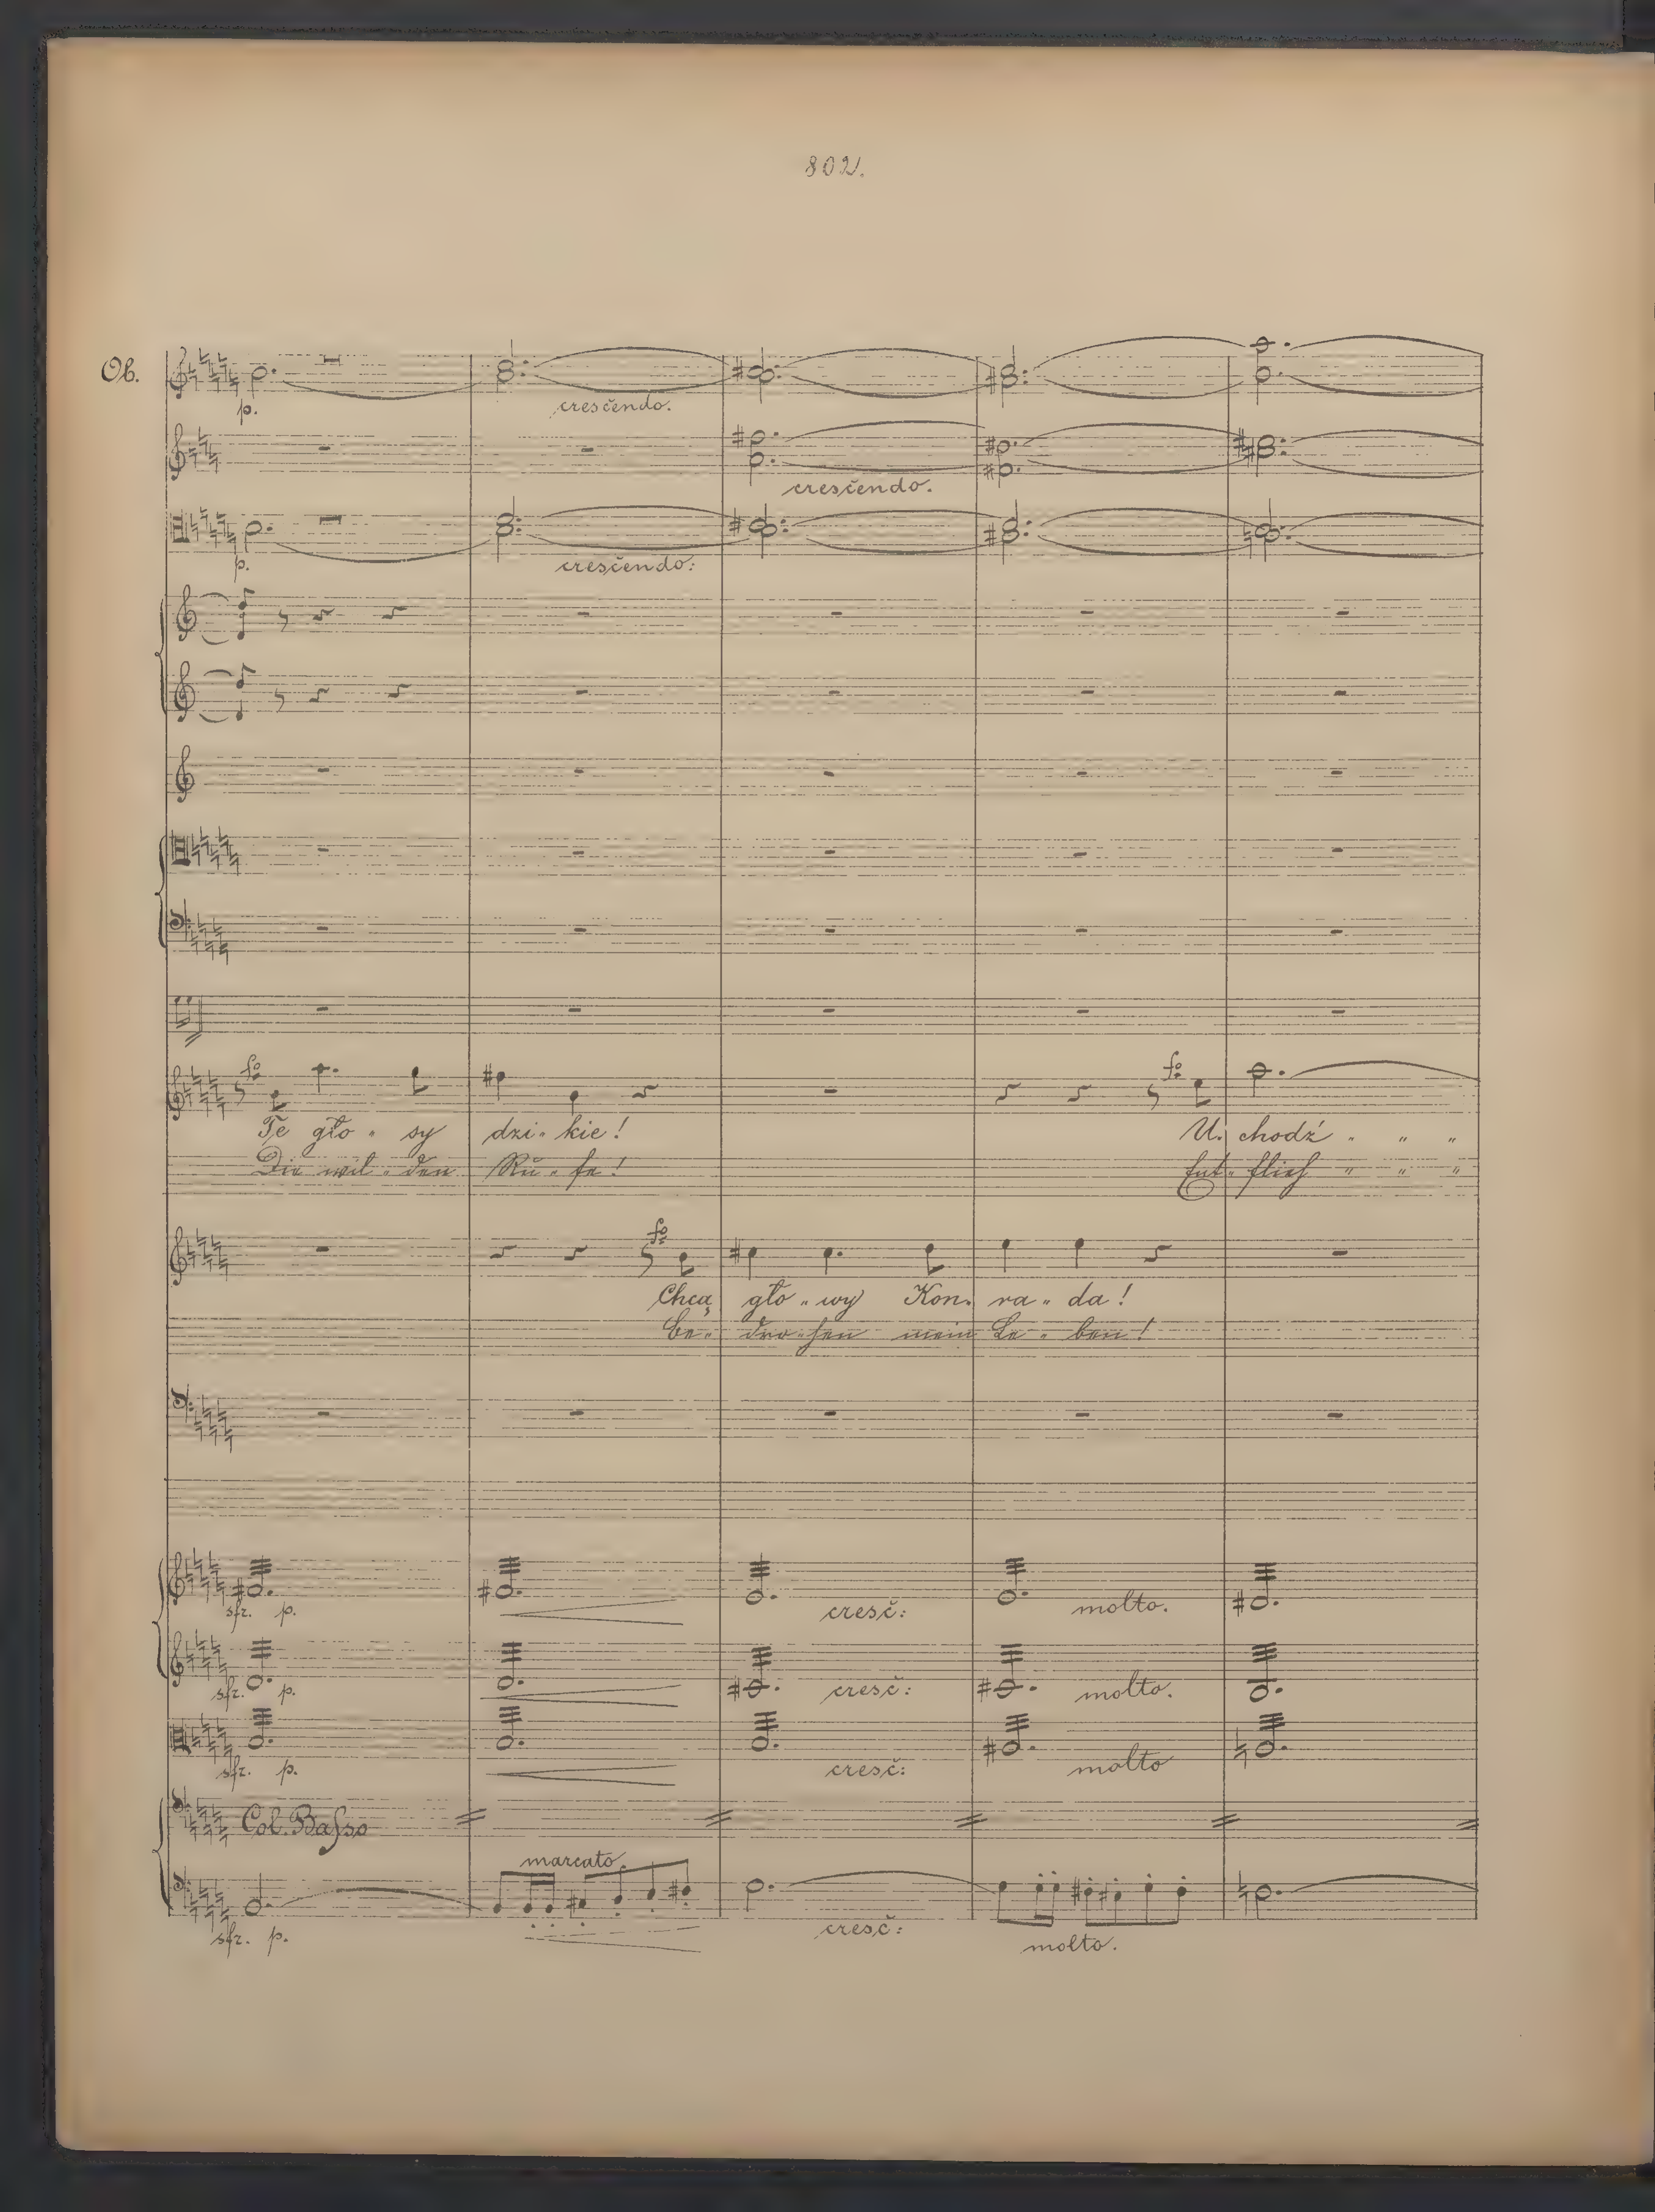 802.
Ob.
p.
crescĕndo.
crescĕndo.
p.
crescĕndo:
fo
fo
Te gło „ sy dzi „ kie! U. chodź „ „ „
Die wil „ den Ru „ fe! Ent „ flieh „ „ „
fo
Chcą gło „ wy Kon. ra „ da!
be „ dro „ hen mein Le „ ben!
sfz. p. cresč: molto.
sfz. p. cresč: molto.
sfz. p. cresč: molto
Col. Basso
marcato
sfz. p. cresč: molto.